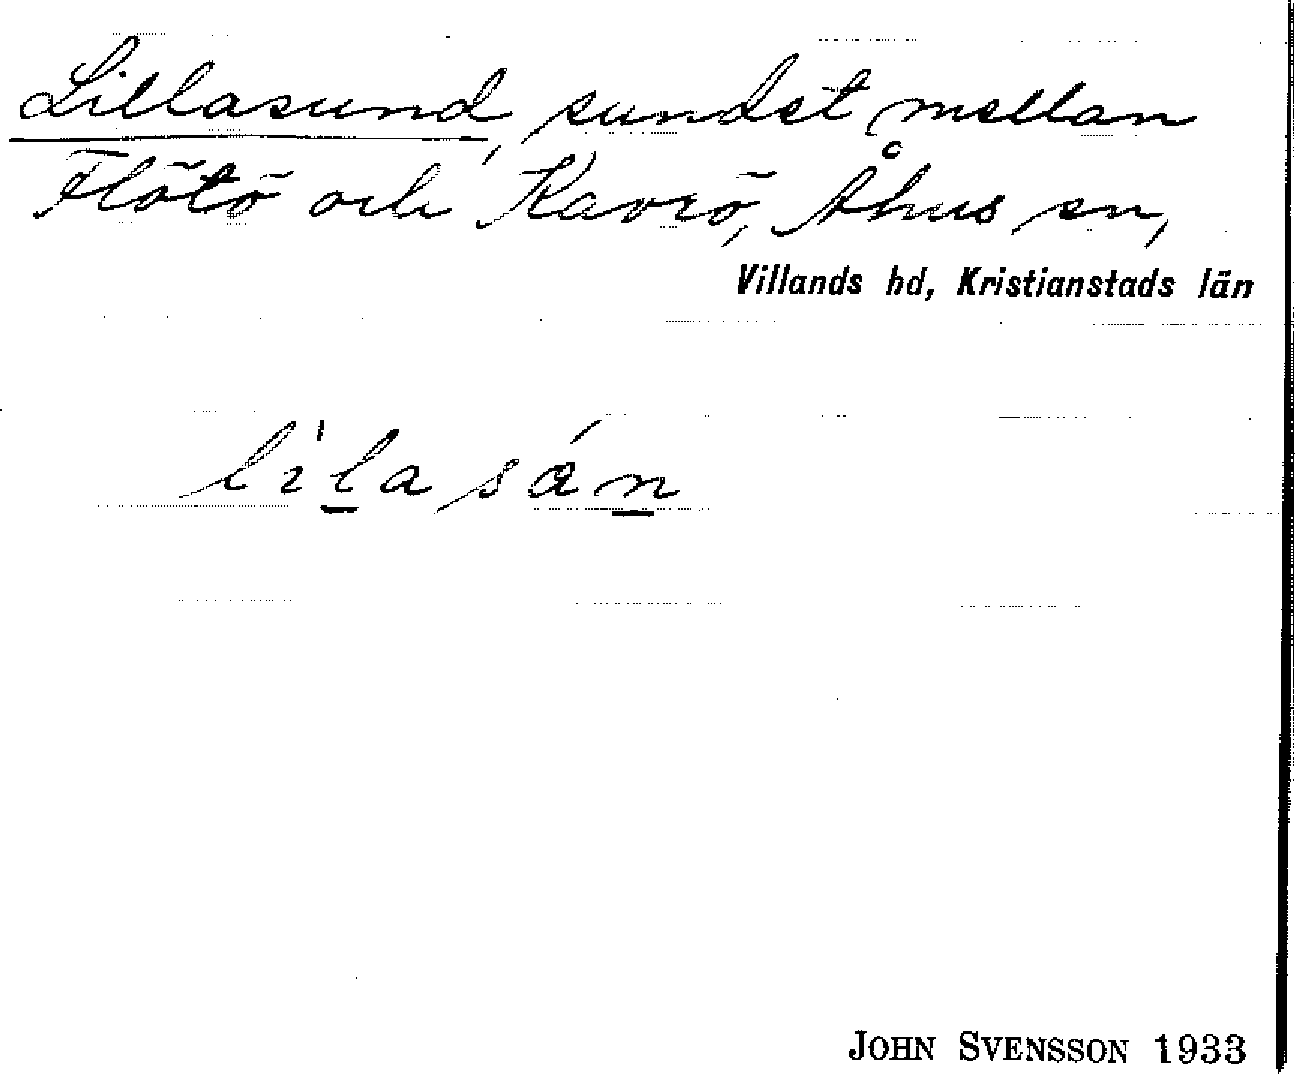 Lillasund, sundet mellan
Flötö och Kavrö, Åhus sn,
Villands hd, Kristianstads län
lìla sán
JOHN SVENSSON 1933